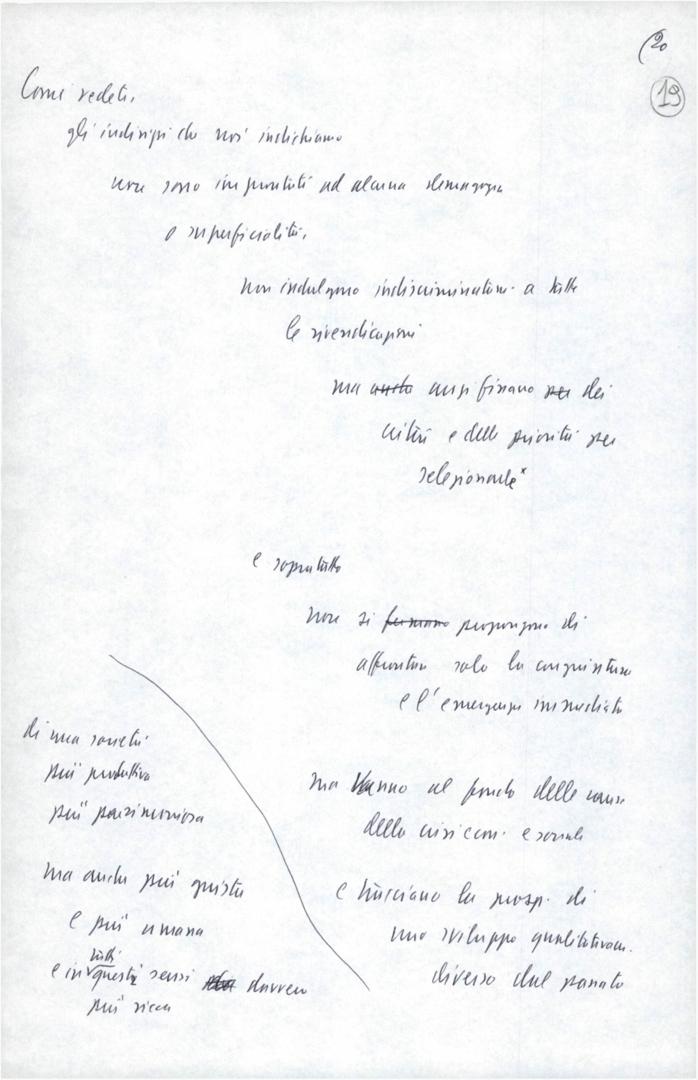 (20
19
Come vedete,
gli indirizzi che noi indichiamo
non sono improntati ad alcuna demagogia
o superficialità,
non indulgono indiscriminatam. a tutte
le rivendicazioni
ma anche anzi fissano per dei
criteri e delle priorità per
selezionarle x
e sopratutto
non si fermano propongono di
affrontare solo la congiuntura
e l'emergenza immediata
ma vanno al fondo delle cause
della crisi econ. e sociale
e tracciano la prosp. di
uno sviluppo qualitativam.
diverso dal passato
di una società
più produttiva
più parsimoniosa
ma anche più giusta
e più umana
tutti
e in questi sensi davvero
più ricca